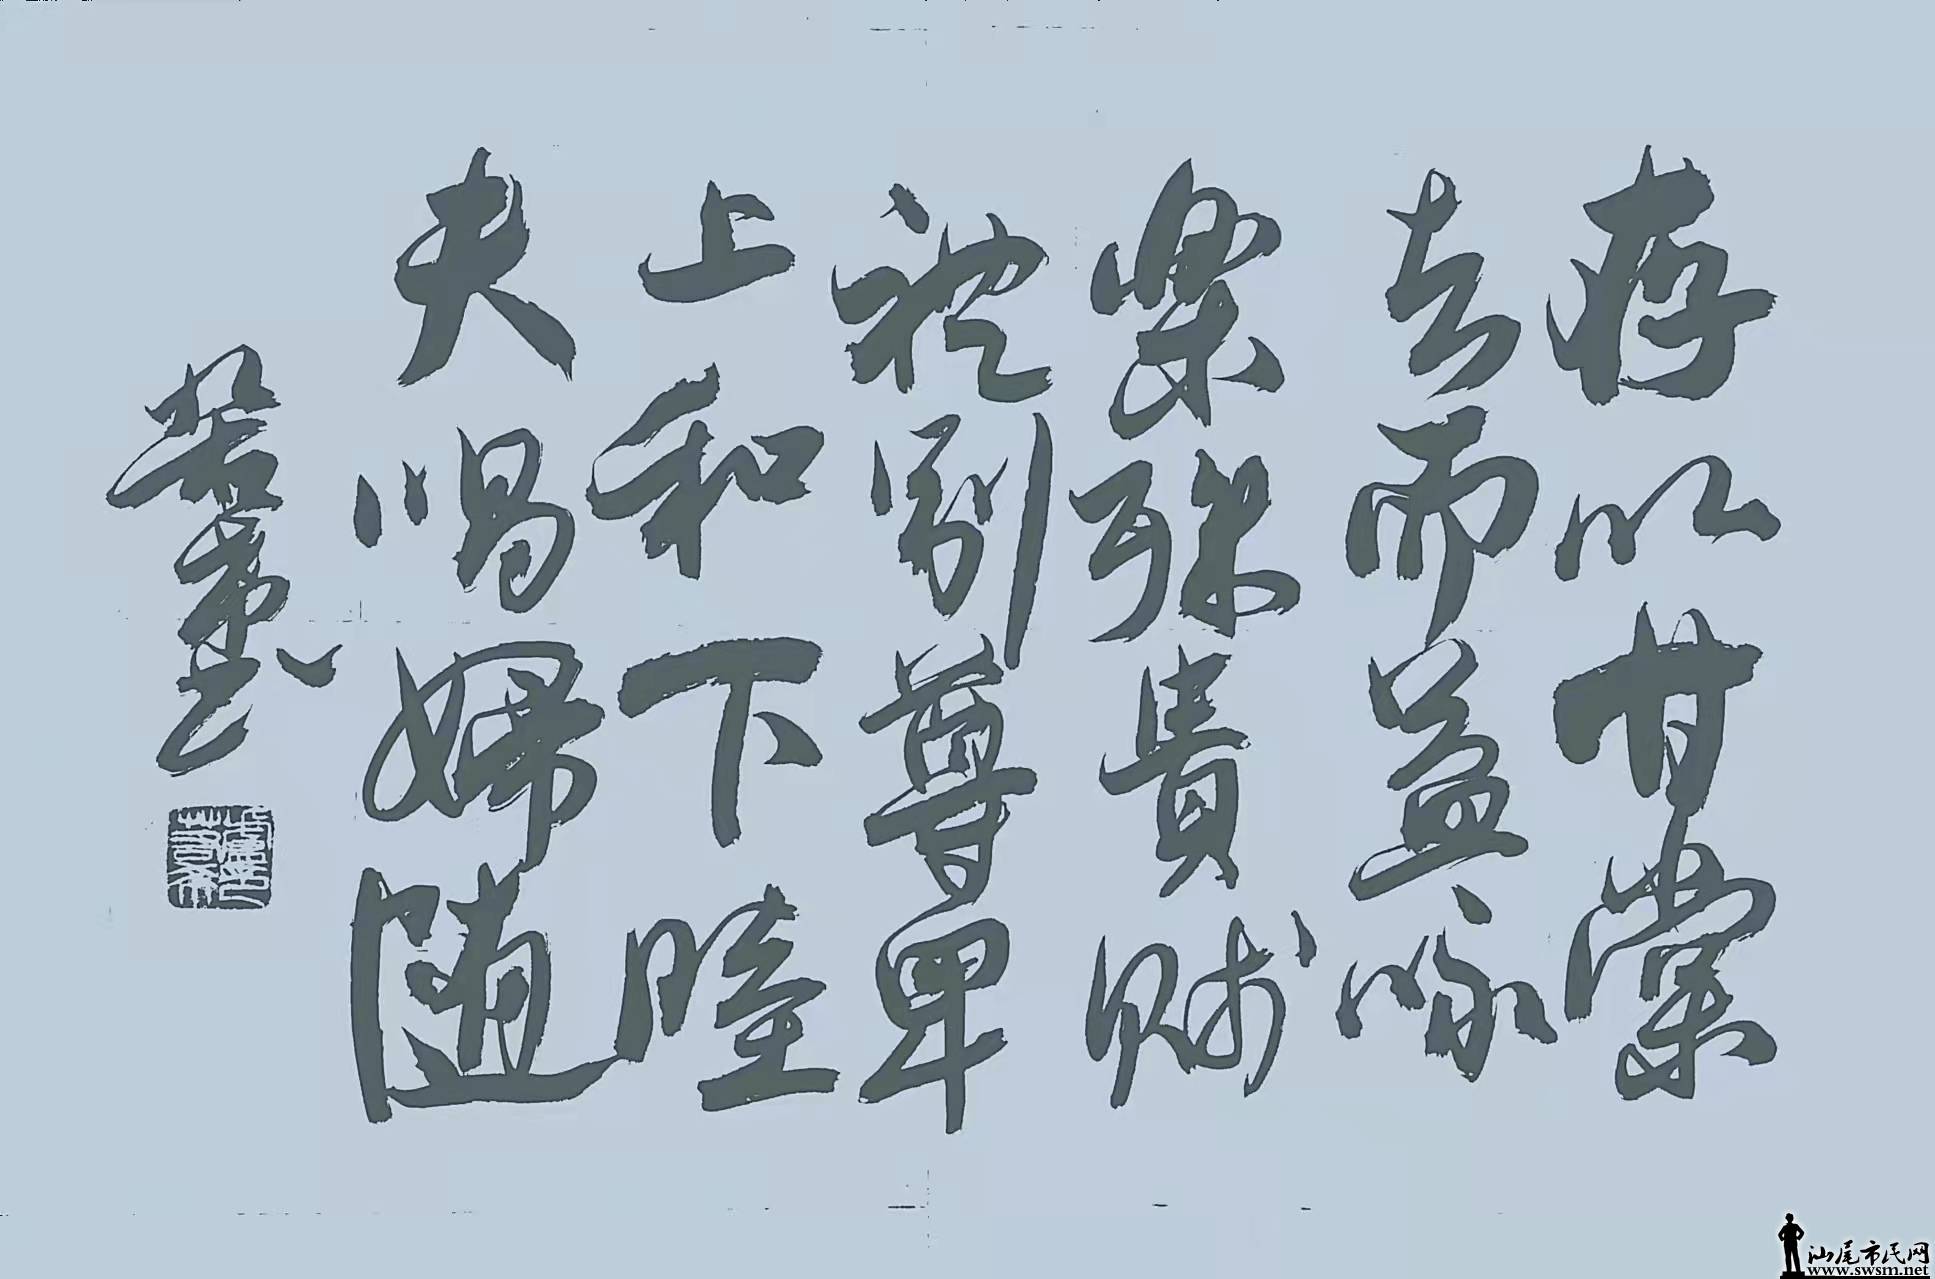 存以甘棠
去而益咏
樂殊貴賤
禮別尊卑
上和下睦
夫唱婦随
汕尾市民网
www.swsm.net